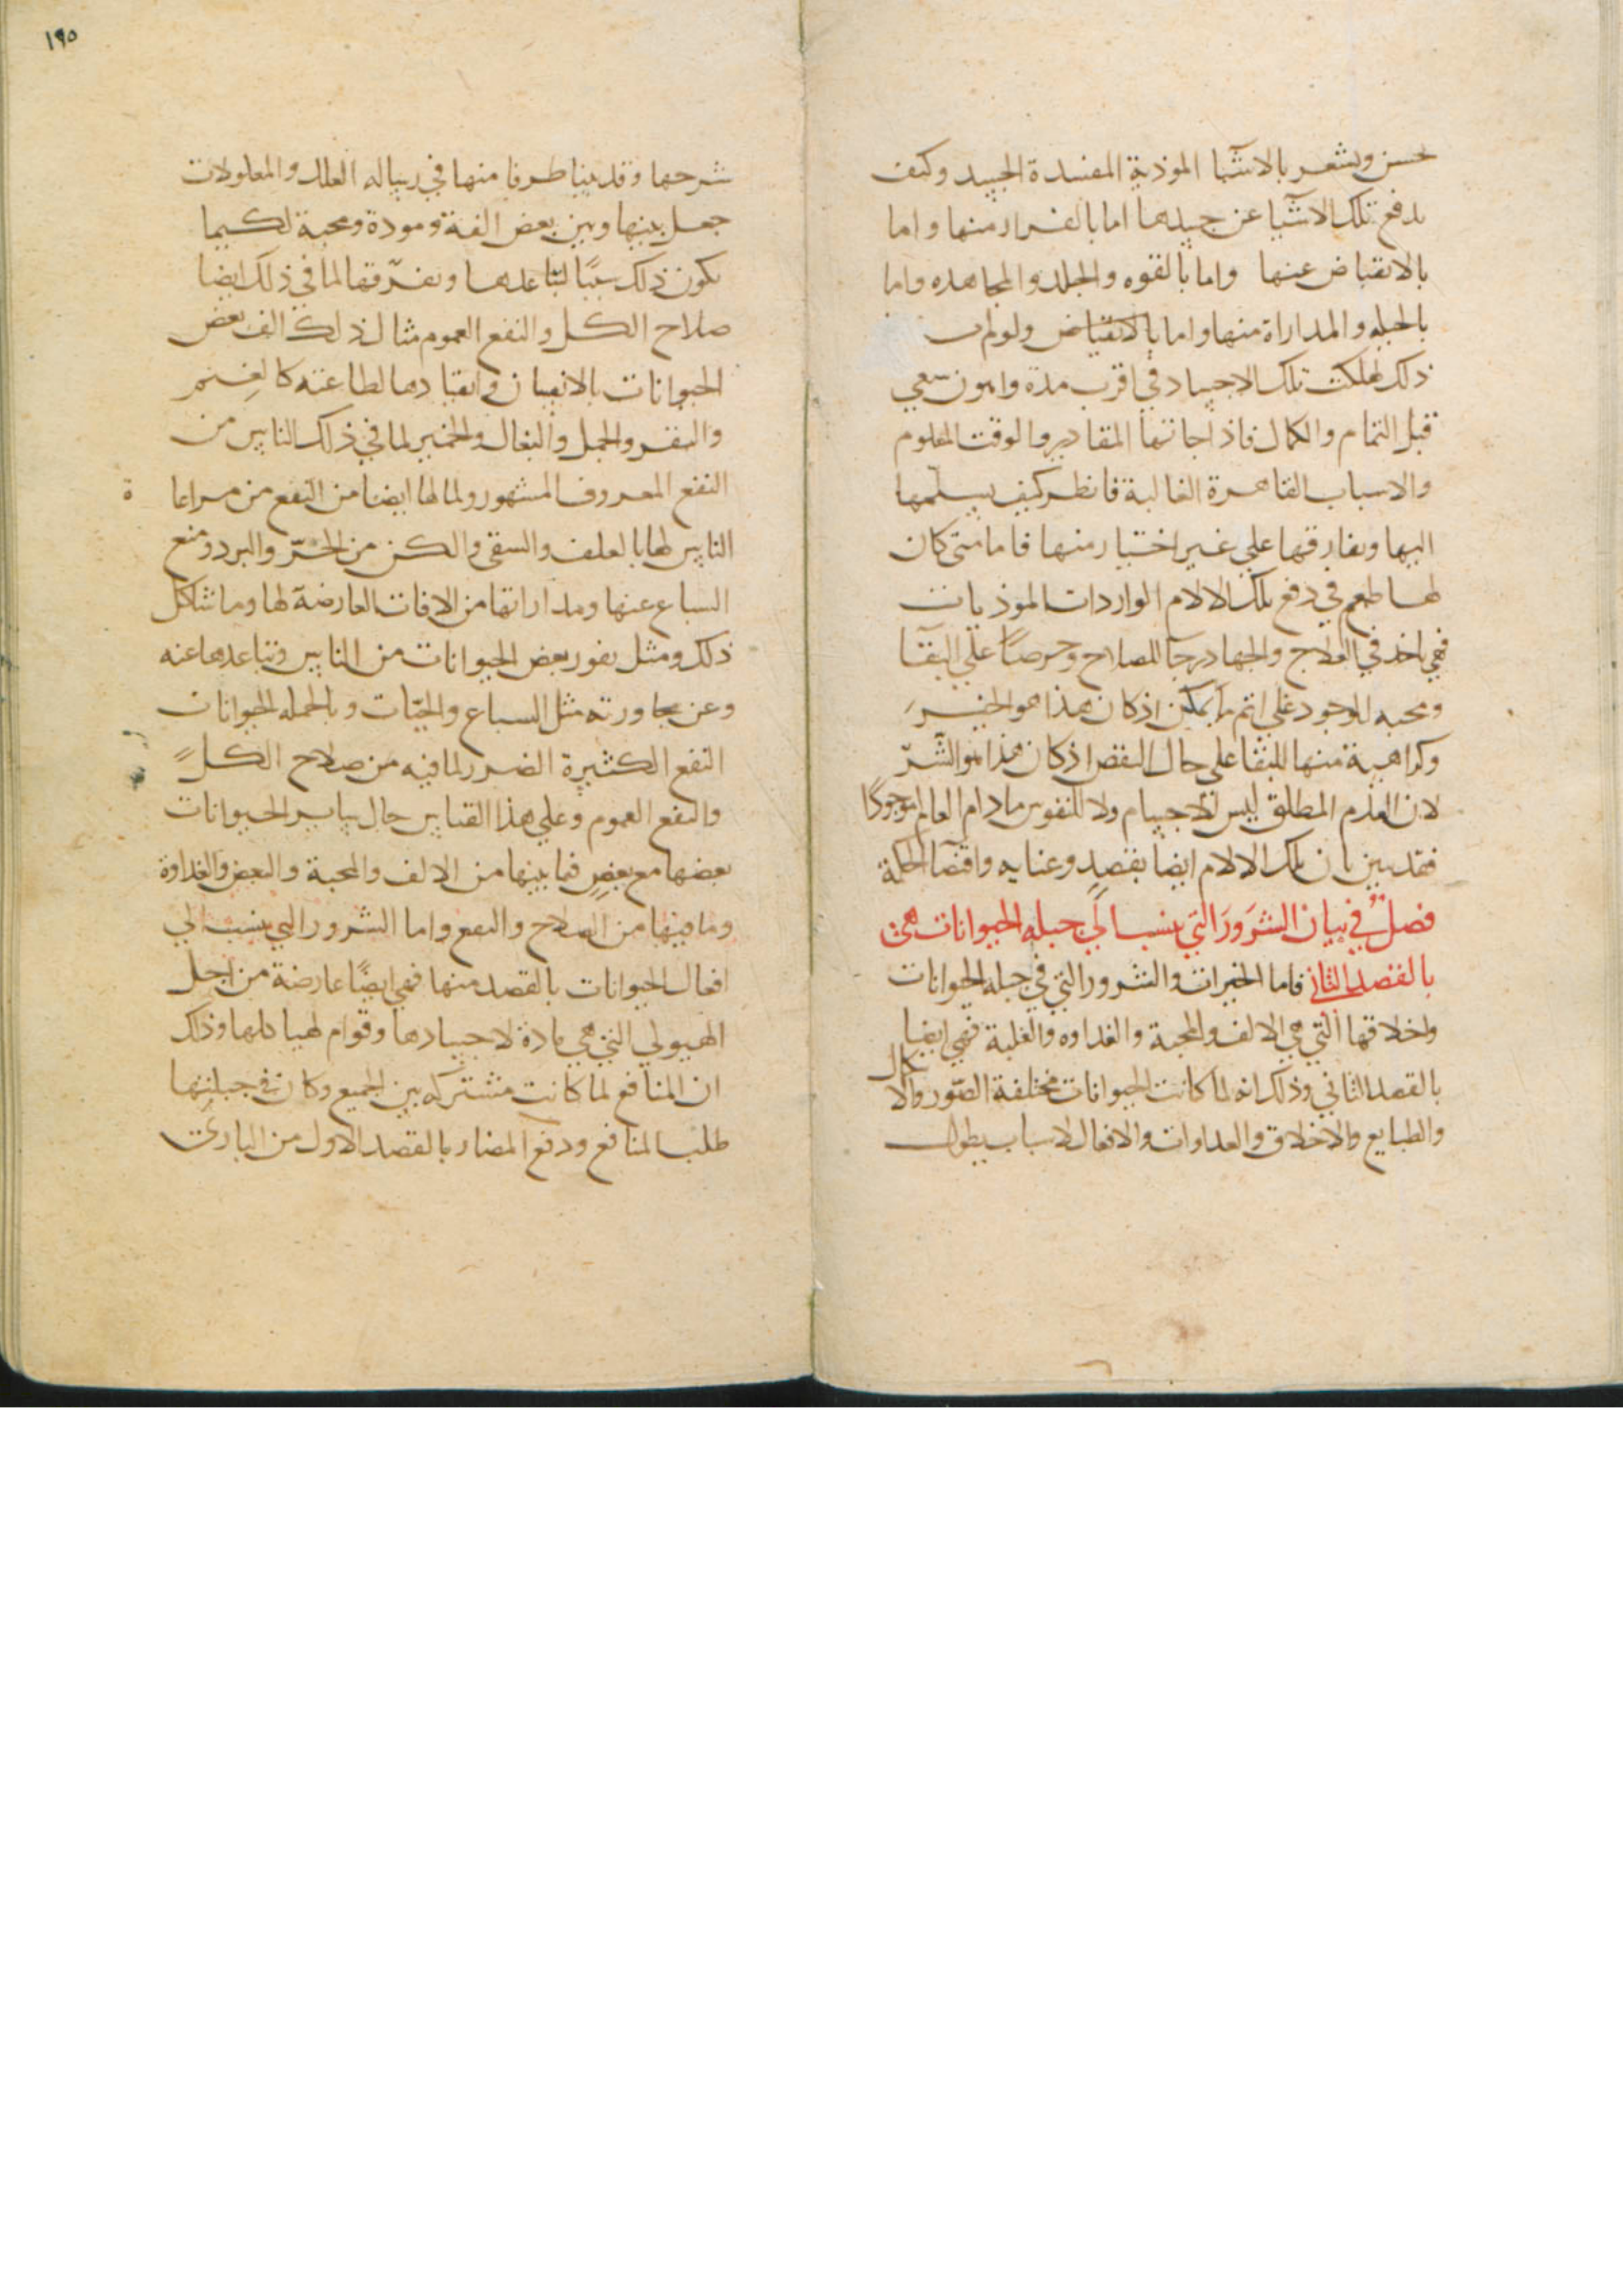 تحسن ويشعر بالاشيا الموذية المفسدة الجسد وكيف
يدفع تلك الاشيا عن جسدها اما بالفرار منها واما
بالانقباض عنها واما بالقوه والجلد والمجاهده واما
بالحيله والمداراة منها واما بالانقباض ولولم
ذلك لهلكت تلك الاجساد في اقرب مدة واهون سعي
قبل التمام والكمال فاذا جاتها المقادير والوقت المعلوم
والاسباب القاهرة الغالبة فانظر كيف يسلمها
اليها ويفارقها علي غير اختيار منها فاما متى كان
لها طمع في دفع تلك الالام الواردات الموذيات
فهي تاخذ في العلاج والجهاد رجآ للصلاح وحرصًا علي البقآ
ومحبه للوجود علي اتم ما يمكن اذ كان هذا هو الخير
وكراهية منها للبقا علي حال النقص اذ كان هذا هو الشرّ
لان العدم المطلق ليس للاجسام ولا للنفوس ما دام العالم موجودًا
فقد تبين بان تلك الالام ايضا بقصدٍ وعنايه واقتضا الحكمة
فصلٌ في بيان الشرور التي ينسب الي جبله الحيوانات هي
بالقصد الثاني فاما الخيرات والشرور التي في جبله الحيوانات
واخلاقها التي هي الالف والمحبة والعداوه والغلبة فهي ايضا
بالقصد الثاني وذلك انه لما كانت الحيوانات مختلفة الصّور والاشكال
والطبايع والاخلاق والعداوات والافعال لاسباب يطول
١٩٥
شرحها وقد بينا طرفا منها في رساله العلل والمعلولات
جعل بينها وبين بعض الفة ومودة ومحبة لكيما
يكون ذلك سببًا لتباعدها وتفرّقها لما في ذلك ايضا
صلاح الكل والنفع العموم مثال ذلك الف بعض
الحيوانات بالانسان وانقيادها لطاعته كالغنم
والبقر والجمل والبغال والحمير لما في ذلك للناس من
النفع المعروف المشهور ولما لها ايضا من النفع من مراعاة
الناس لها بالعلف والسقي والكن من الحرّ والبرد ومنع
السباع عنها ومداراتها من الافات العارضة لها وما شاكل
ذلك ومثل نفور بعض الحيوانات من الناس وتباعدها عنه
وعن مجاورته مثل السباع والحيّات وبالجمله الحيوانات
النفع الكثيرة الضرر لما فيه من صلاح الكل
والنفع العموم وعلي هذا القياس حال ساير الحيوانات
بعضها مع بعضٍ فما بينها من الالف والمحبة والبعض والعداوة
وما فيها من الصلاح والنفع واما الشرور التي ينسب الي
افعال الحيوانات بالقصد منها فهي ايضًا عارضة من اجل
الهيولي التي هي مادة لاجسادها وقوام لهياكلها وذلك
ان المنافع لما كانت مشتركه بين الجميع وكان في جبلتها
طلب المنافع ودفع المضار بالقصد الاول من الباري